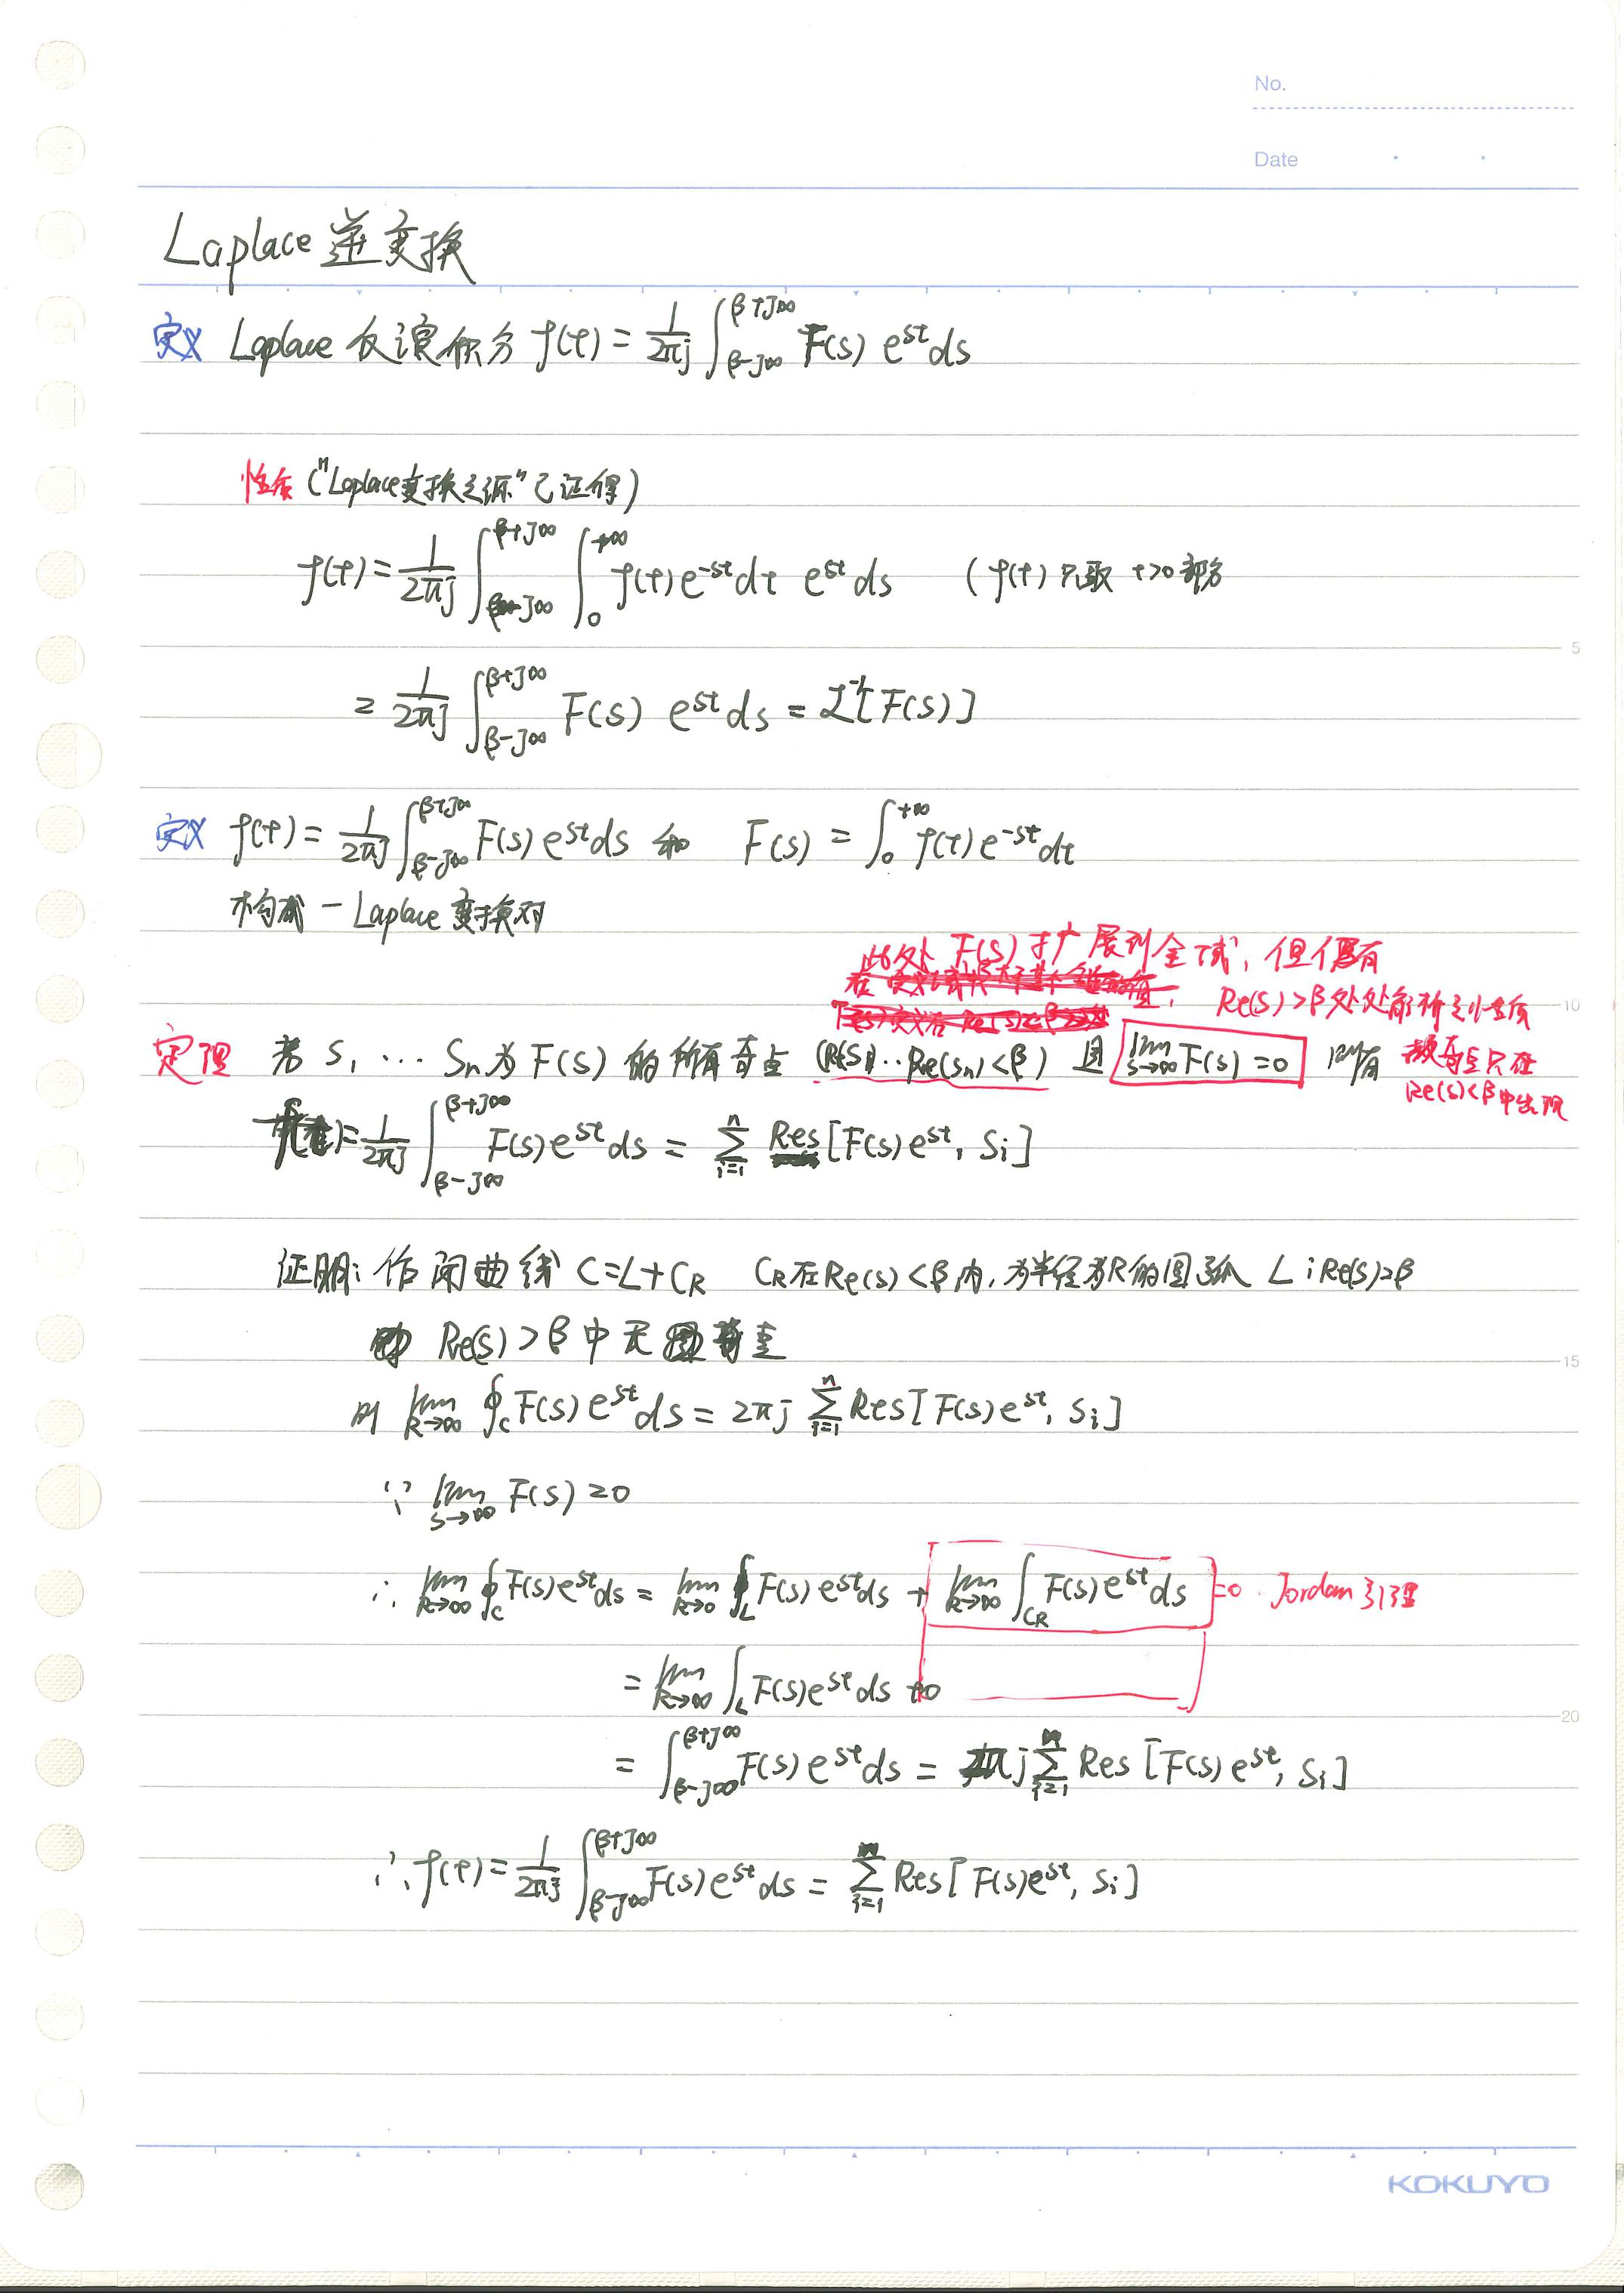 No.
Date
Laplace 逆变换
定义 Laplace 反演积分 f(t) = \frac{1}{2πj} \int_{β-j∞}^{β+j∞} F(s) e^{st} ds
性质 ("Laplace变换之源"已证得)
f(t) = \frac{1}{2πj} \int_{β-j∞}^{β+j∞} \int_0^{+∞} f(t) e^{-st} dt e^{st} ds (f(t) 只取 t>0 部分
= \frac{1}{2πj} \int_{β-j∞}^{β+j∞} F(s) e^{st} ds = L^{-1}[F(s)]
5
定义 f(t) = \frac{1}{2πj} \int_{β-j∞}^{β+j∞} F(s) e^{st} ds 和 F(s) = \int_0^{+∞} f(t) e^{-st} dt
构成一 Laplace 变换对
此处 F(s) 扩展到全域, 但仍有
Re(s)>β处处解析之性质
10
定理 若 s₁ ... sₙ 为 F(s) 的所有奇点 (Re(s₁)...Re(sₙ)<β) 且 \lim_{s→∞} F(s) = 0 则有
故奇点只在
Re(s)<β中出现
\frac{1}{2πj} \int_{β-j∞}^{β+j∞} F(s) e^{st} ds = \sum_{i=1}^{n} Res [F(s) e^{st}, s_i]
证明: 作闭曲线 C=L+C_R C_R在Re(s)<β内, 为半径为R的圆弧 L: Re(s)=β
Re(s)>β 中无奇点
15
则 \lim_{R→∞} \oint_C F(s) e^{st} ds = 2πj \sum_{i=1}^{n} Res [F(s) e^{st}, s_i]
∵ \lim_{s→∞} F(s) = 0
∴ \lim_{R→∞} \oint_C F(s) e^{st} ds = \lim_{R→0} \int_L F(s) e^{st} ds + \lim_{R→∞} \int_{C_R} F(s) e^{st} ds =0 Jordan 引理
= \lim_{R→∞} \int_L F(s) e^{st} ds +0
20
= \int_{β-j∞}^{β+j∞} F(s) e^{st} ds = 2πj \sum_{i=1}^{n} Res [F(s) e^{st}, s_i]
∴ f(t) = \frac{1}{2πj} \int_{β-j∞}^{β+j∞} F(s) e^{st} ds = \sum_{i=1}^{n} Res [F(s) e^{st}, s_i]
KOKUYO